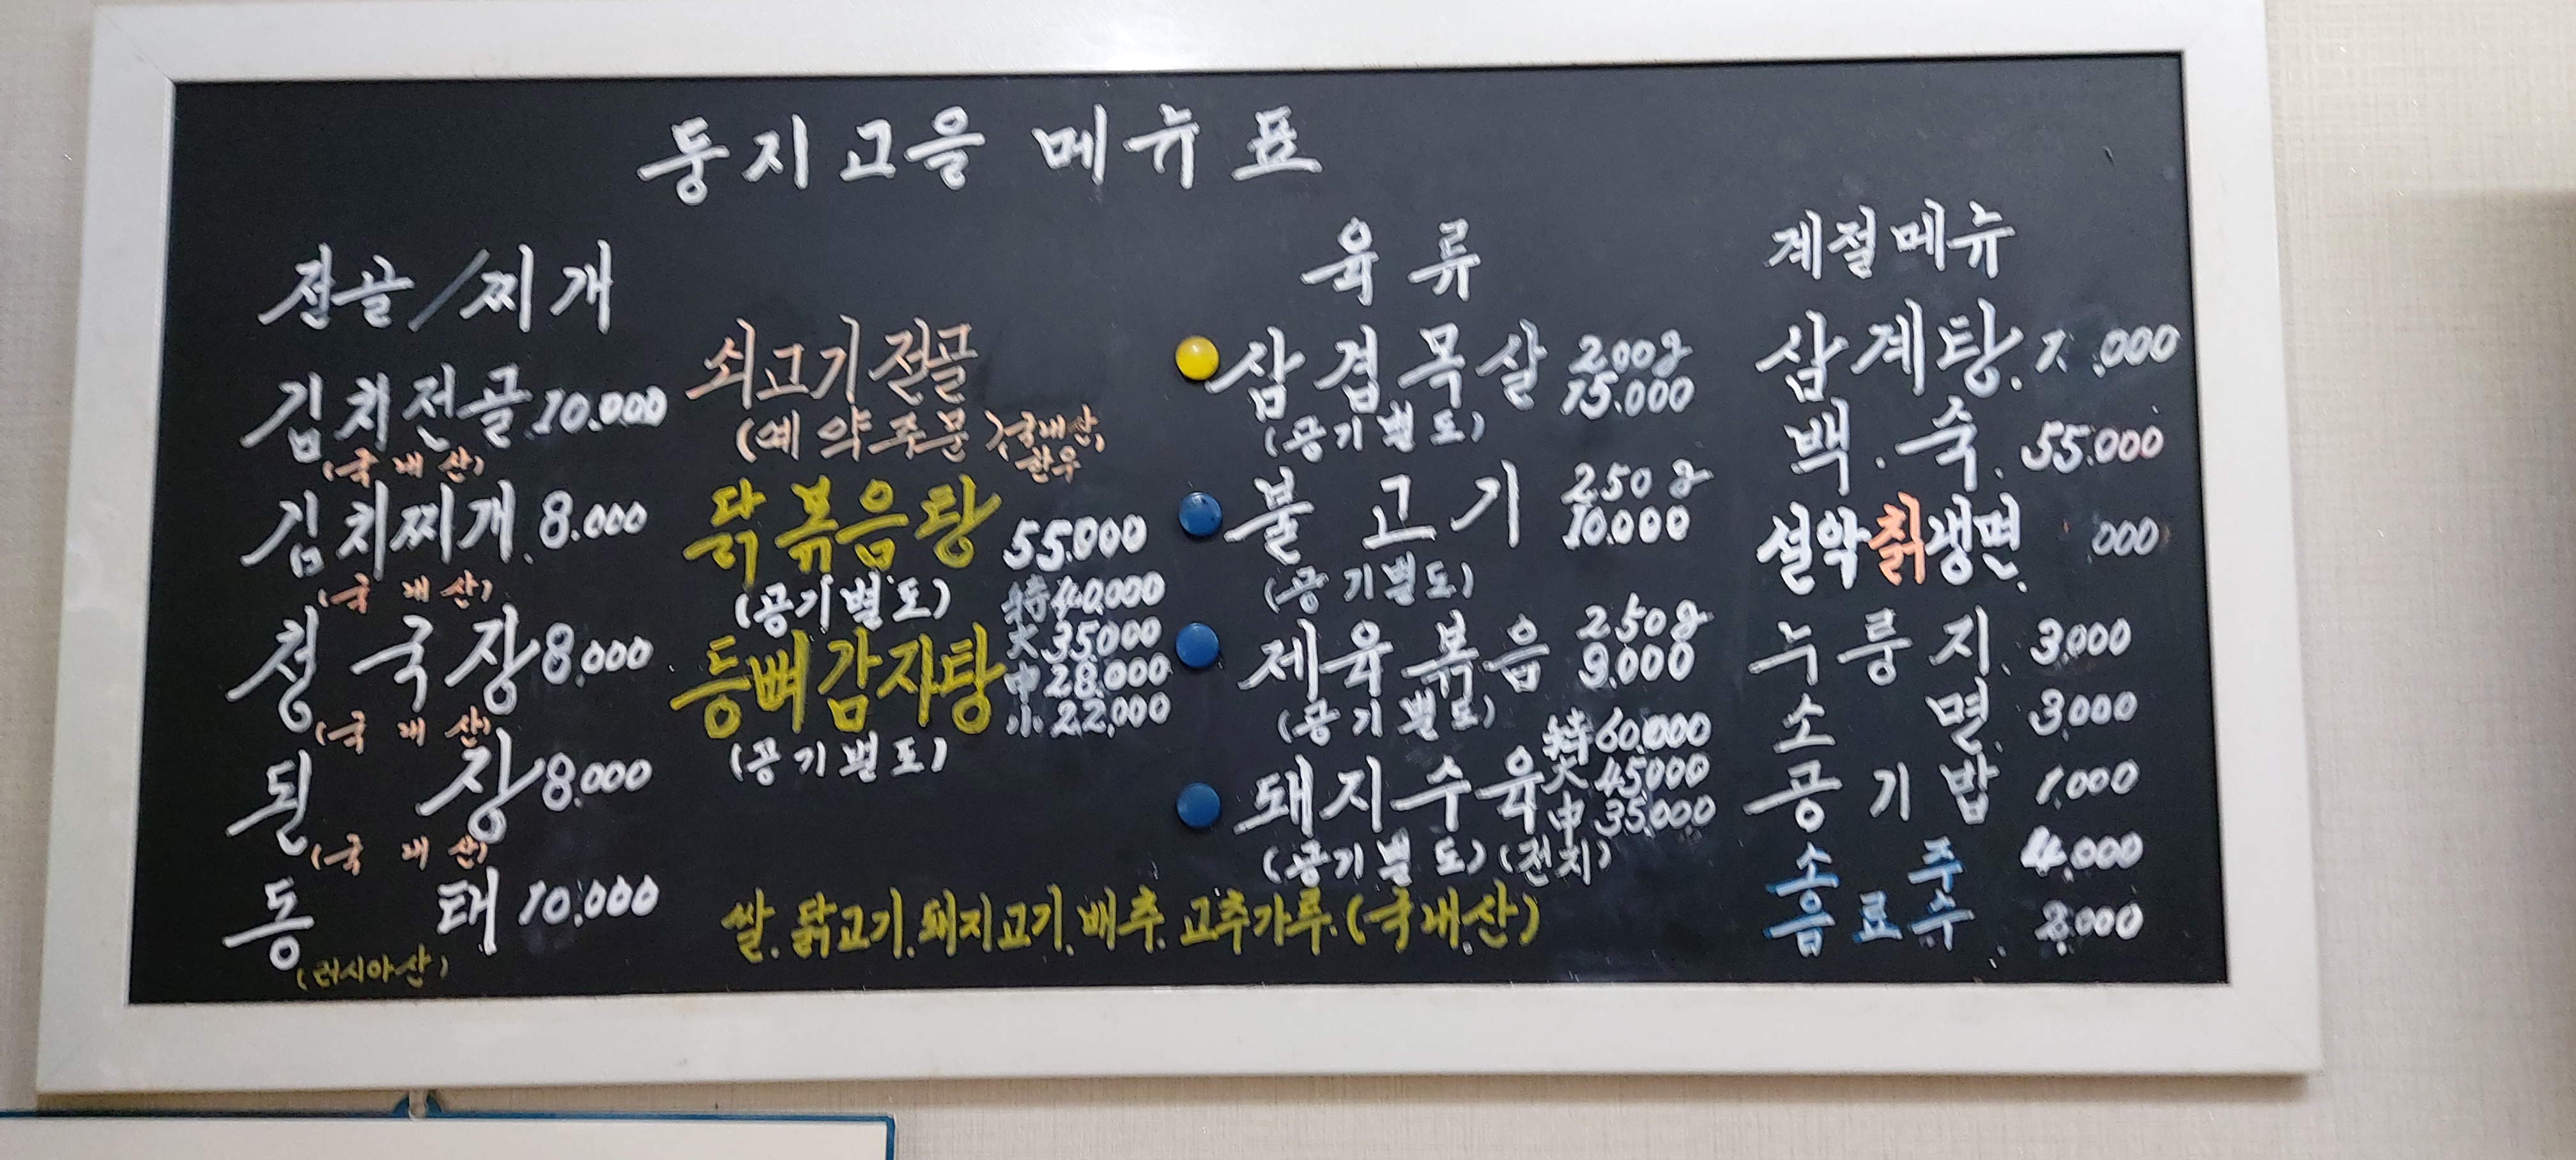 둥지고을 메뉴표
전골/찌개
김치전골 10.000
(국내산)
김치찌개 8.000
(국내산)
청국장 8.000
(국내산)
된장 8.000
(국내산)
동태 10.000
(러시아산)
쇠고기전골
(예약주문) (국내산, 한우
닭볶음탕 55.000
(공기별도)
등뼈감자탕 特 40.000
大 35.000
中 28.000
小 22.000
(공기별도)
육류
삼겹목살 200g 15.000
(공기별도)
불고기 250g 10.000
(공기별도)
제육볶음 250g 9.000
(공기별도)
돼지수육 特 60.000
大 45.000
中 35.000
(공기별도) (전지)
쌀. 닭고기. 돼지고기. 배추. 고추가루. (국내산)
계절메뉴
삼계탕. 1 .000
백.숙. 55.000
설악칡냉면. 000
누룽지. 3.000
소면. 3.000
공기밥 1.000
소주 4.000
음료수 2.000